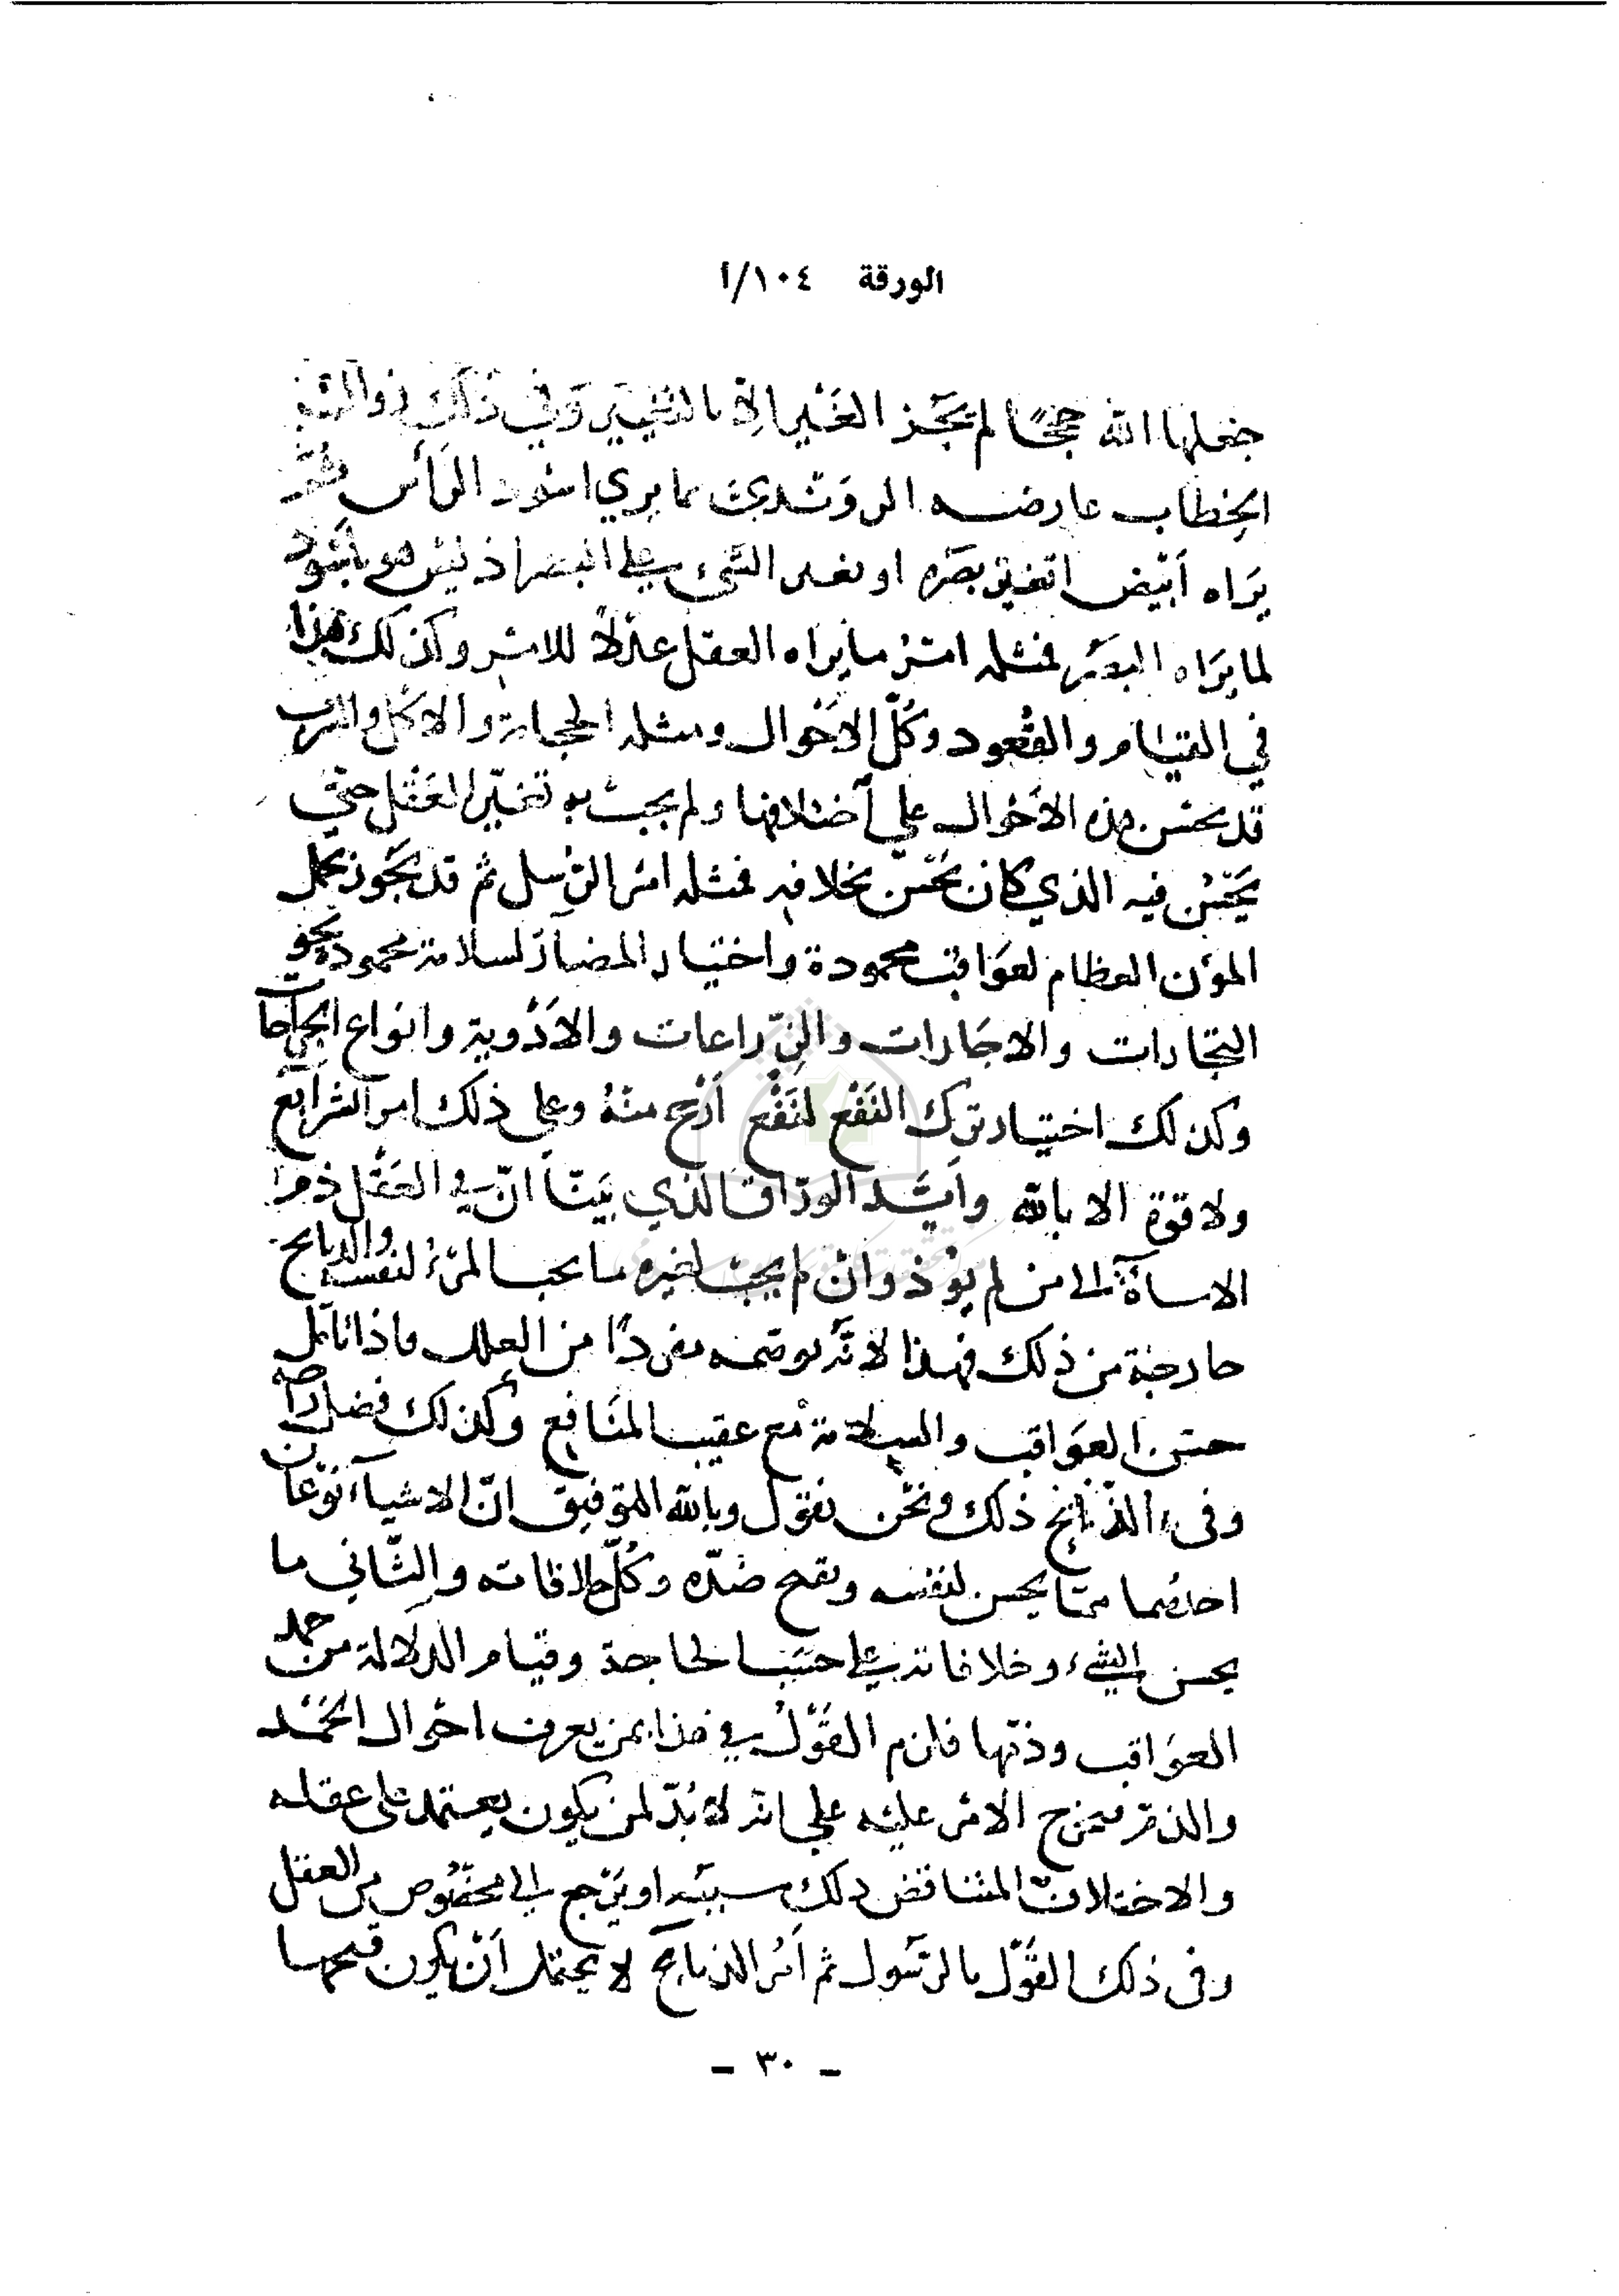 الورقة ١٠٤/أ
جعلها الله حججًا لم يجز الغير الا بالتغيير وفي ذلك زوال
الخطاب عارضه الروندي بما يري اسود الرأس ثم
يراه أبيض اتغير بصره او تغير الشيء على البصر اذ ليس هو باسود
لما يراه البصر فمثله امر ما يراه العقل عدلاً للامر وكذلك هذا
في القيام والقعود وكلّ الاحوال ومثله الحجامة والاكل والشرب
قد يحسن هذه الأحوال علي اختلافها ولم يجب به تغيّر العقل حتى
يحسن فيه الذي كان يحسن بخلافه فمثله امر الرسل ثم قد يجوز تحمل
المؤن العظام لعواقب محمودة واختيار المضار لسلامة محمودة نحو
التجارات والاجارات والزّراعات والأدوية وانواع الجراحات
وكذلك اختيار ترك النفع لنفع أرجح منه وعلى ذلك امر الشرايع
ولا قوة الا بالله وأيّد الورّاق الذي بيّنا انّ في العقل ذم
الاساءة الى من لم يوذ وان لم يحب لغيره ما يحب المرء لنفسه والذبايح
خارجة من ذلك فهذا لانه توهمه مفردًا من العلل فاذا تأمّل
حسن العواقب والسلامة مع عقيب المنافع وكذلك فضل راحة
وفي الذبايح ذلك ونحن نقول وبالله التوفيق انّ الاشياء نوعان
احدهما ممّا يحسن لنفسه ويقبح ضدّه وكلّ خلافاته والثّاني ما
يحسن الشيء وخلافاته على حسب الحاجة وقيام الدلالة من حمد
العواقب وذمّها فلزم القول في هذا بمن يعرف احوال الحمد
والذم فيخرج الامر عليه علي انه لا بدّ لمن يكون يعتمد على عقله
والاختلاف المتناقض ذلك سببه او يرجع الى مخصوص من العقل
وفى ذلك القول بالرسول ثم أمر الذبايح لا يحتمل أن يكون قبحها
- ٣٠ -